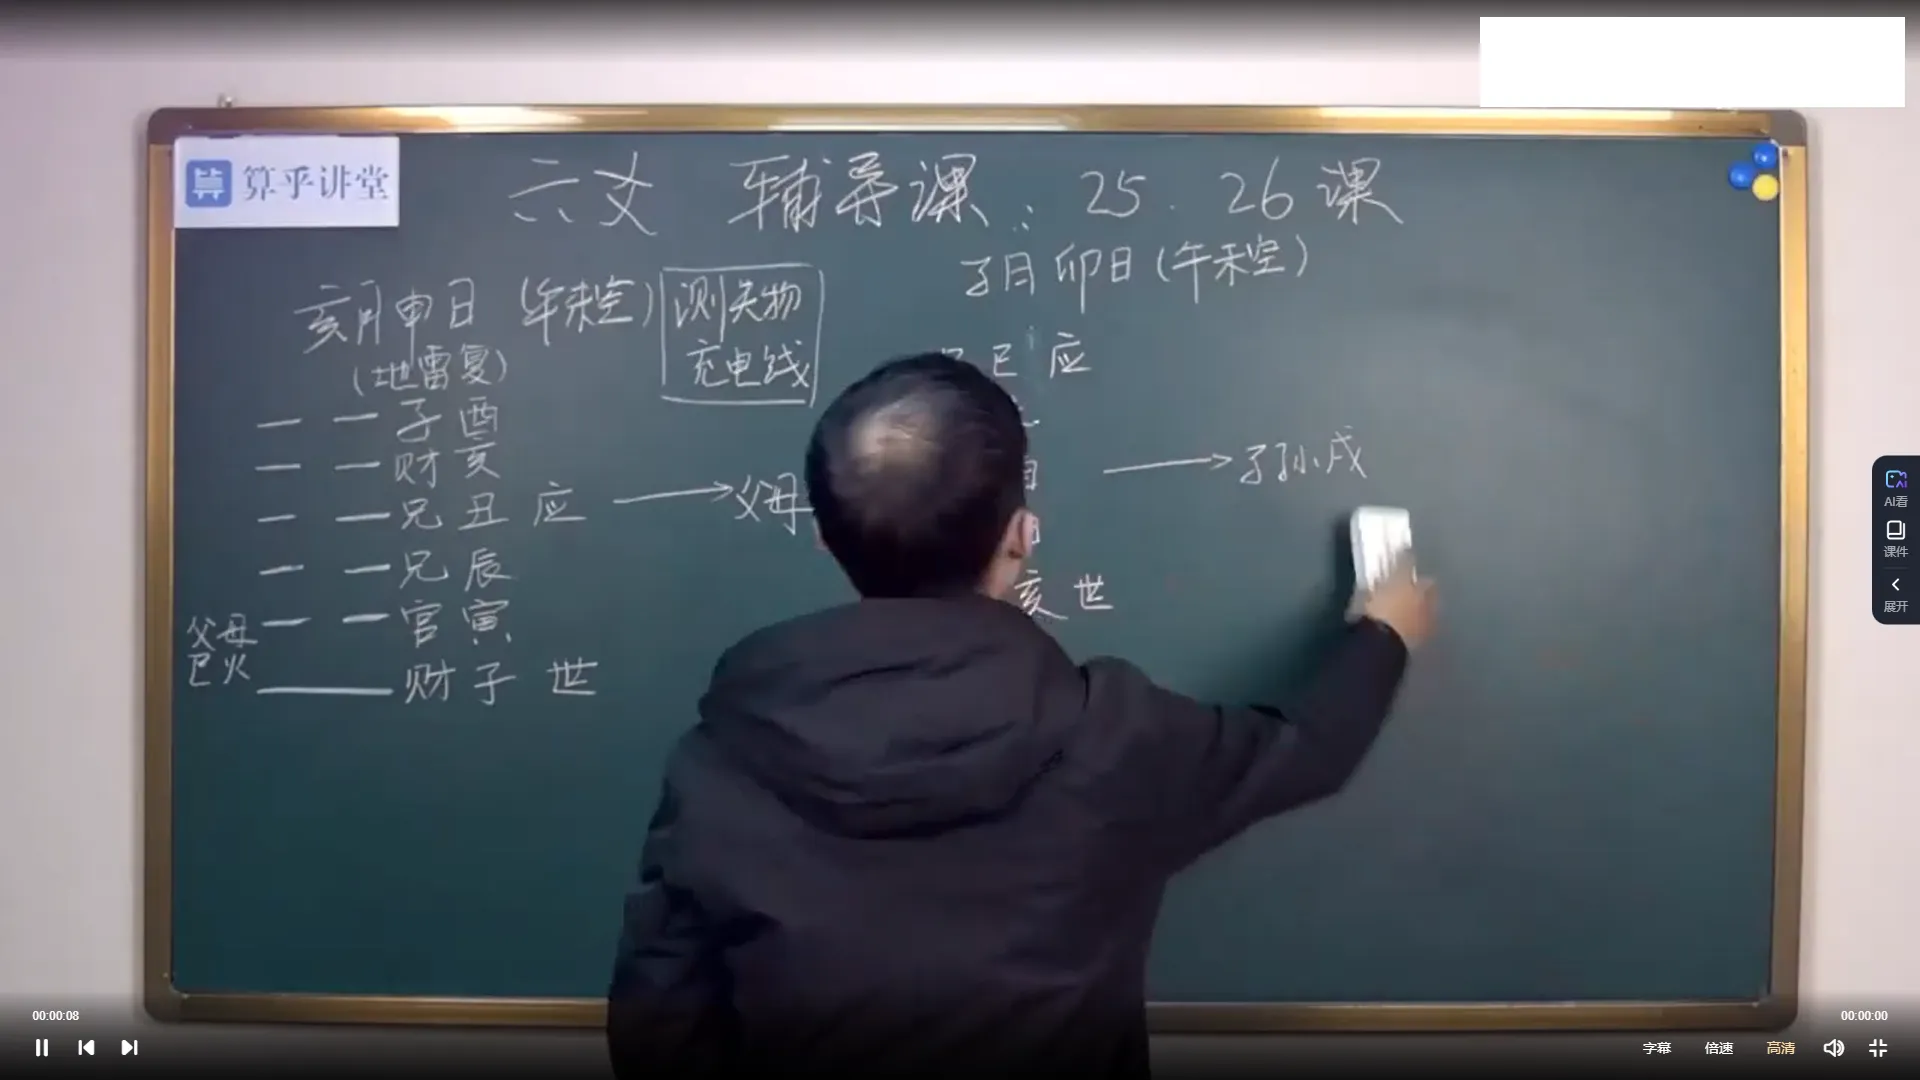 算乎讲堂
六爻 辅导课：25.26课
亥月申日（午未空）
（地雷复）
测失物
充电线
子酉
财亥
兄丑 应 → 父母
兄辰
官寅
父母
巳火
财子 世
子月卯日（午未空）
巳 应
→ 子孙戌
亥世
AI看
课件
展开
00:00:08
00:00:00
字幕
倍速
高清